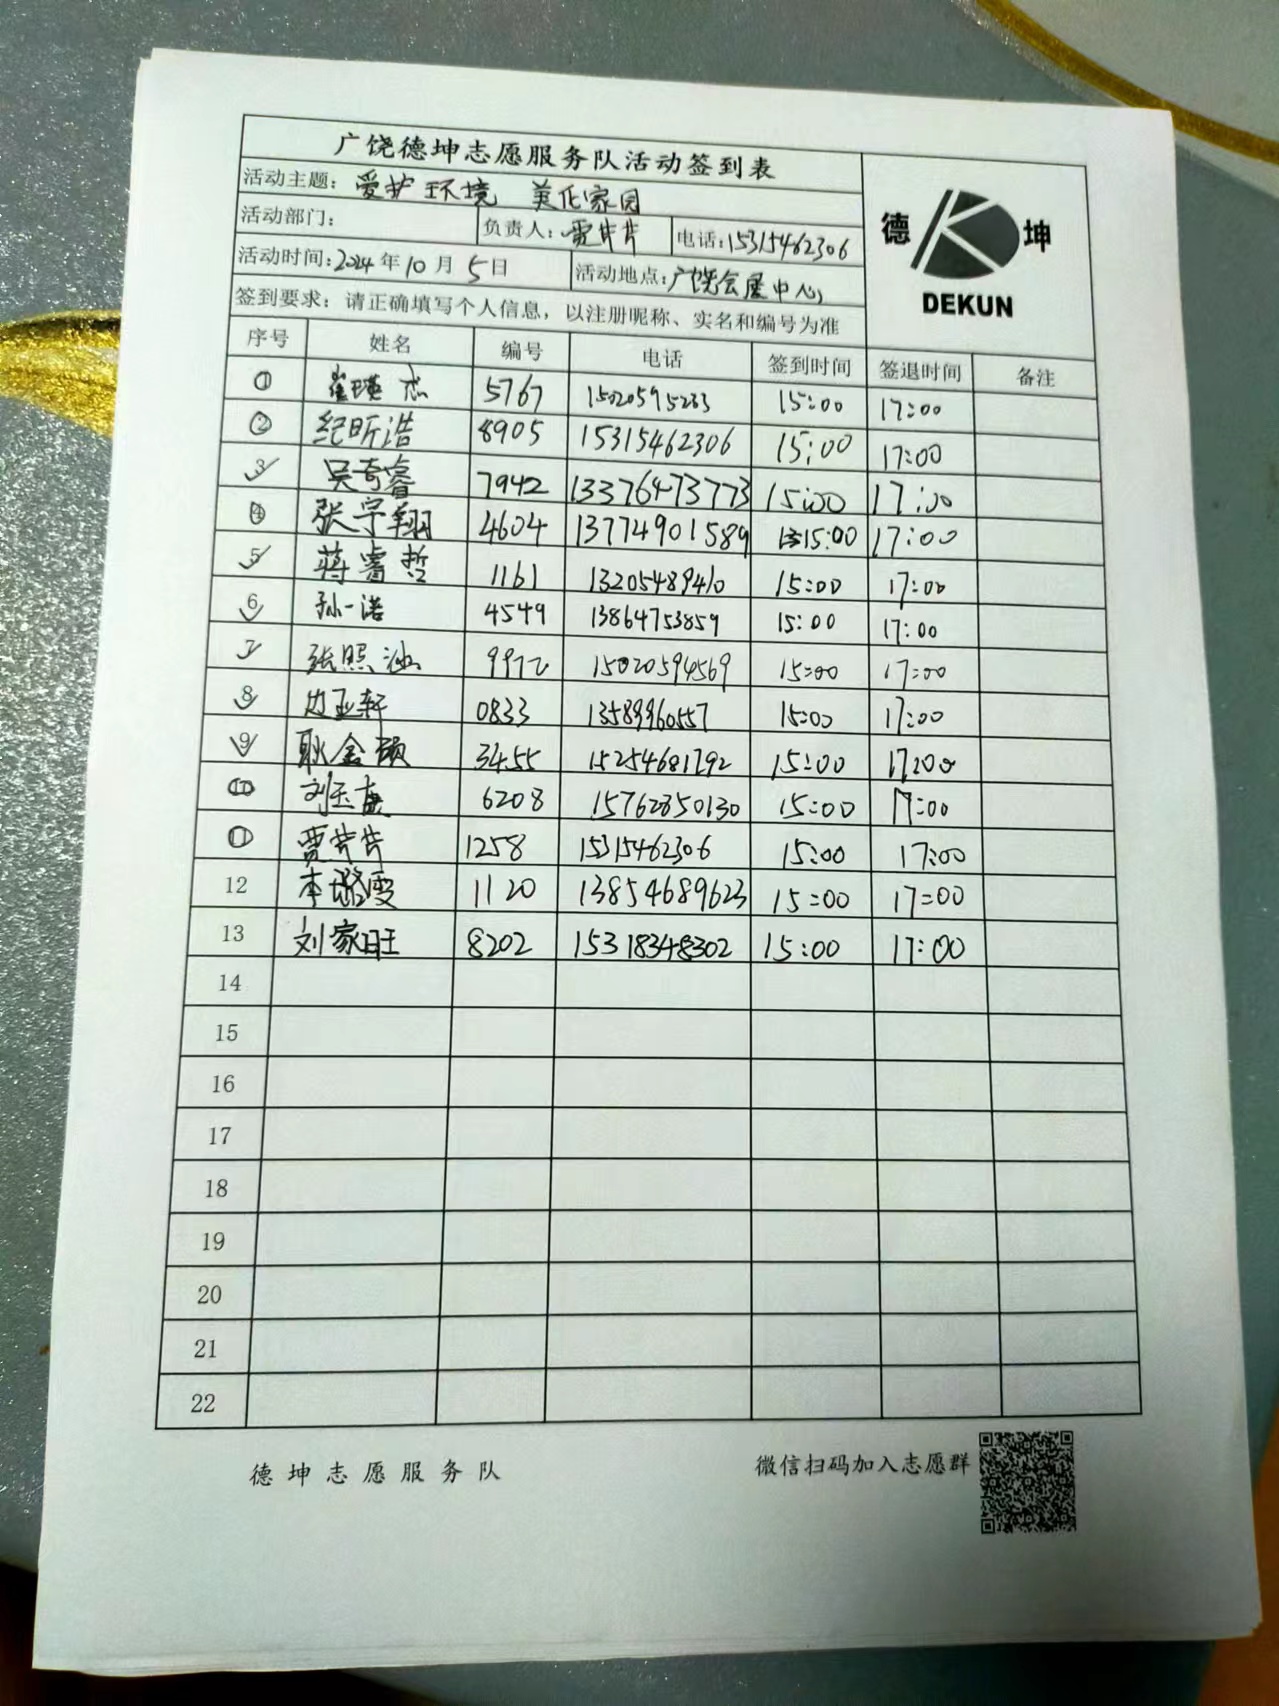 广饶德坤志愿服务队活动签到表
活动主题：爱护环境 美化家园
活动部门： 负责人：贾芹芹 电话：15315462306
活动时间：2024年10月5日 活动地点：广饶会展中心
签到要求：请正确填写个人信息，以注册昵称、实名和编号为准
德 坤
DEKUN
序号 姓名 编号 电话 签到时间 签退时间 备注
1 崔瑛杰 5767 15020595233 15:00 17:00
2 纪昕浩 8905 15315462306 15:00 17:00
3 吴奇睿 7942 13376473773 15:00 17:00
4 张宇翔 4604 13774901589 15:00 17:00
5 蒋睿哲 1161 13205489410 15:00 17:00
6 孙一诺 4549 13864753859 15:00 17:00
7 张照涵 9972 15020594569 15:00 17:00
8 亚轩 0833 13589960557 15:00 17:00
9 耿金硕 3455 15254681792 15:00 17:00
刘玉 6208 15762850130 15:00 17:00
11 贾芹芹 1258 15315462306 15:00 17:00
12 雯 1120 13854689623 15:00 17:00
13 刘家旺 8202 15318348302 15:00 17:00
14
15
16
17
18
19
20
21
22
德坤志愿服务队 微信扫码加入志愿群